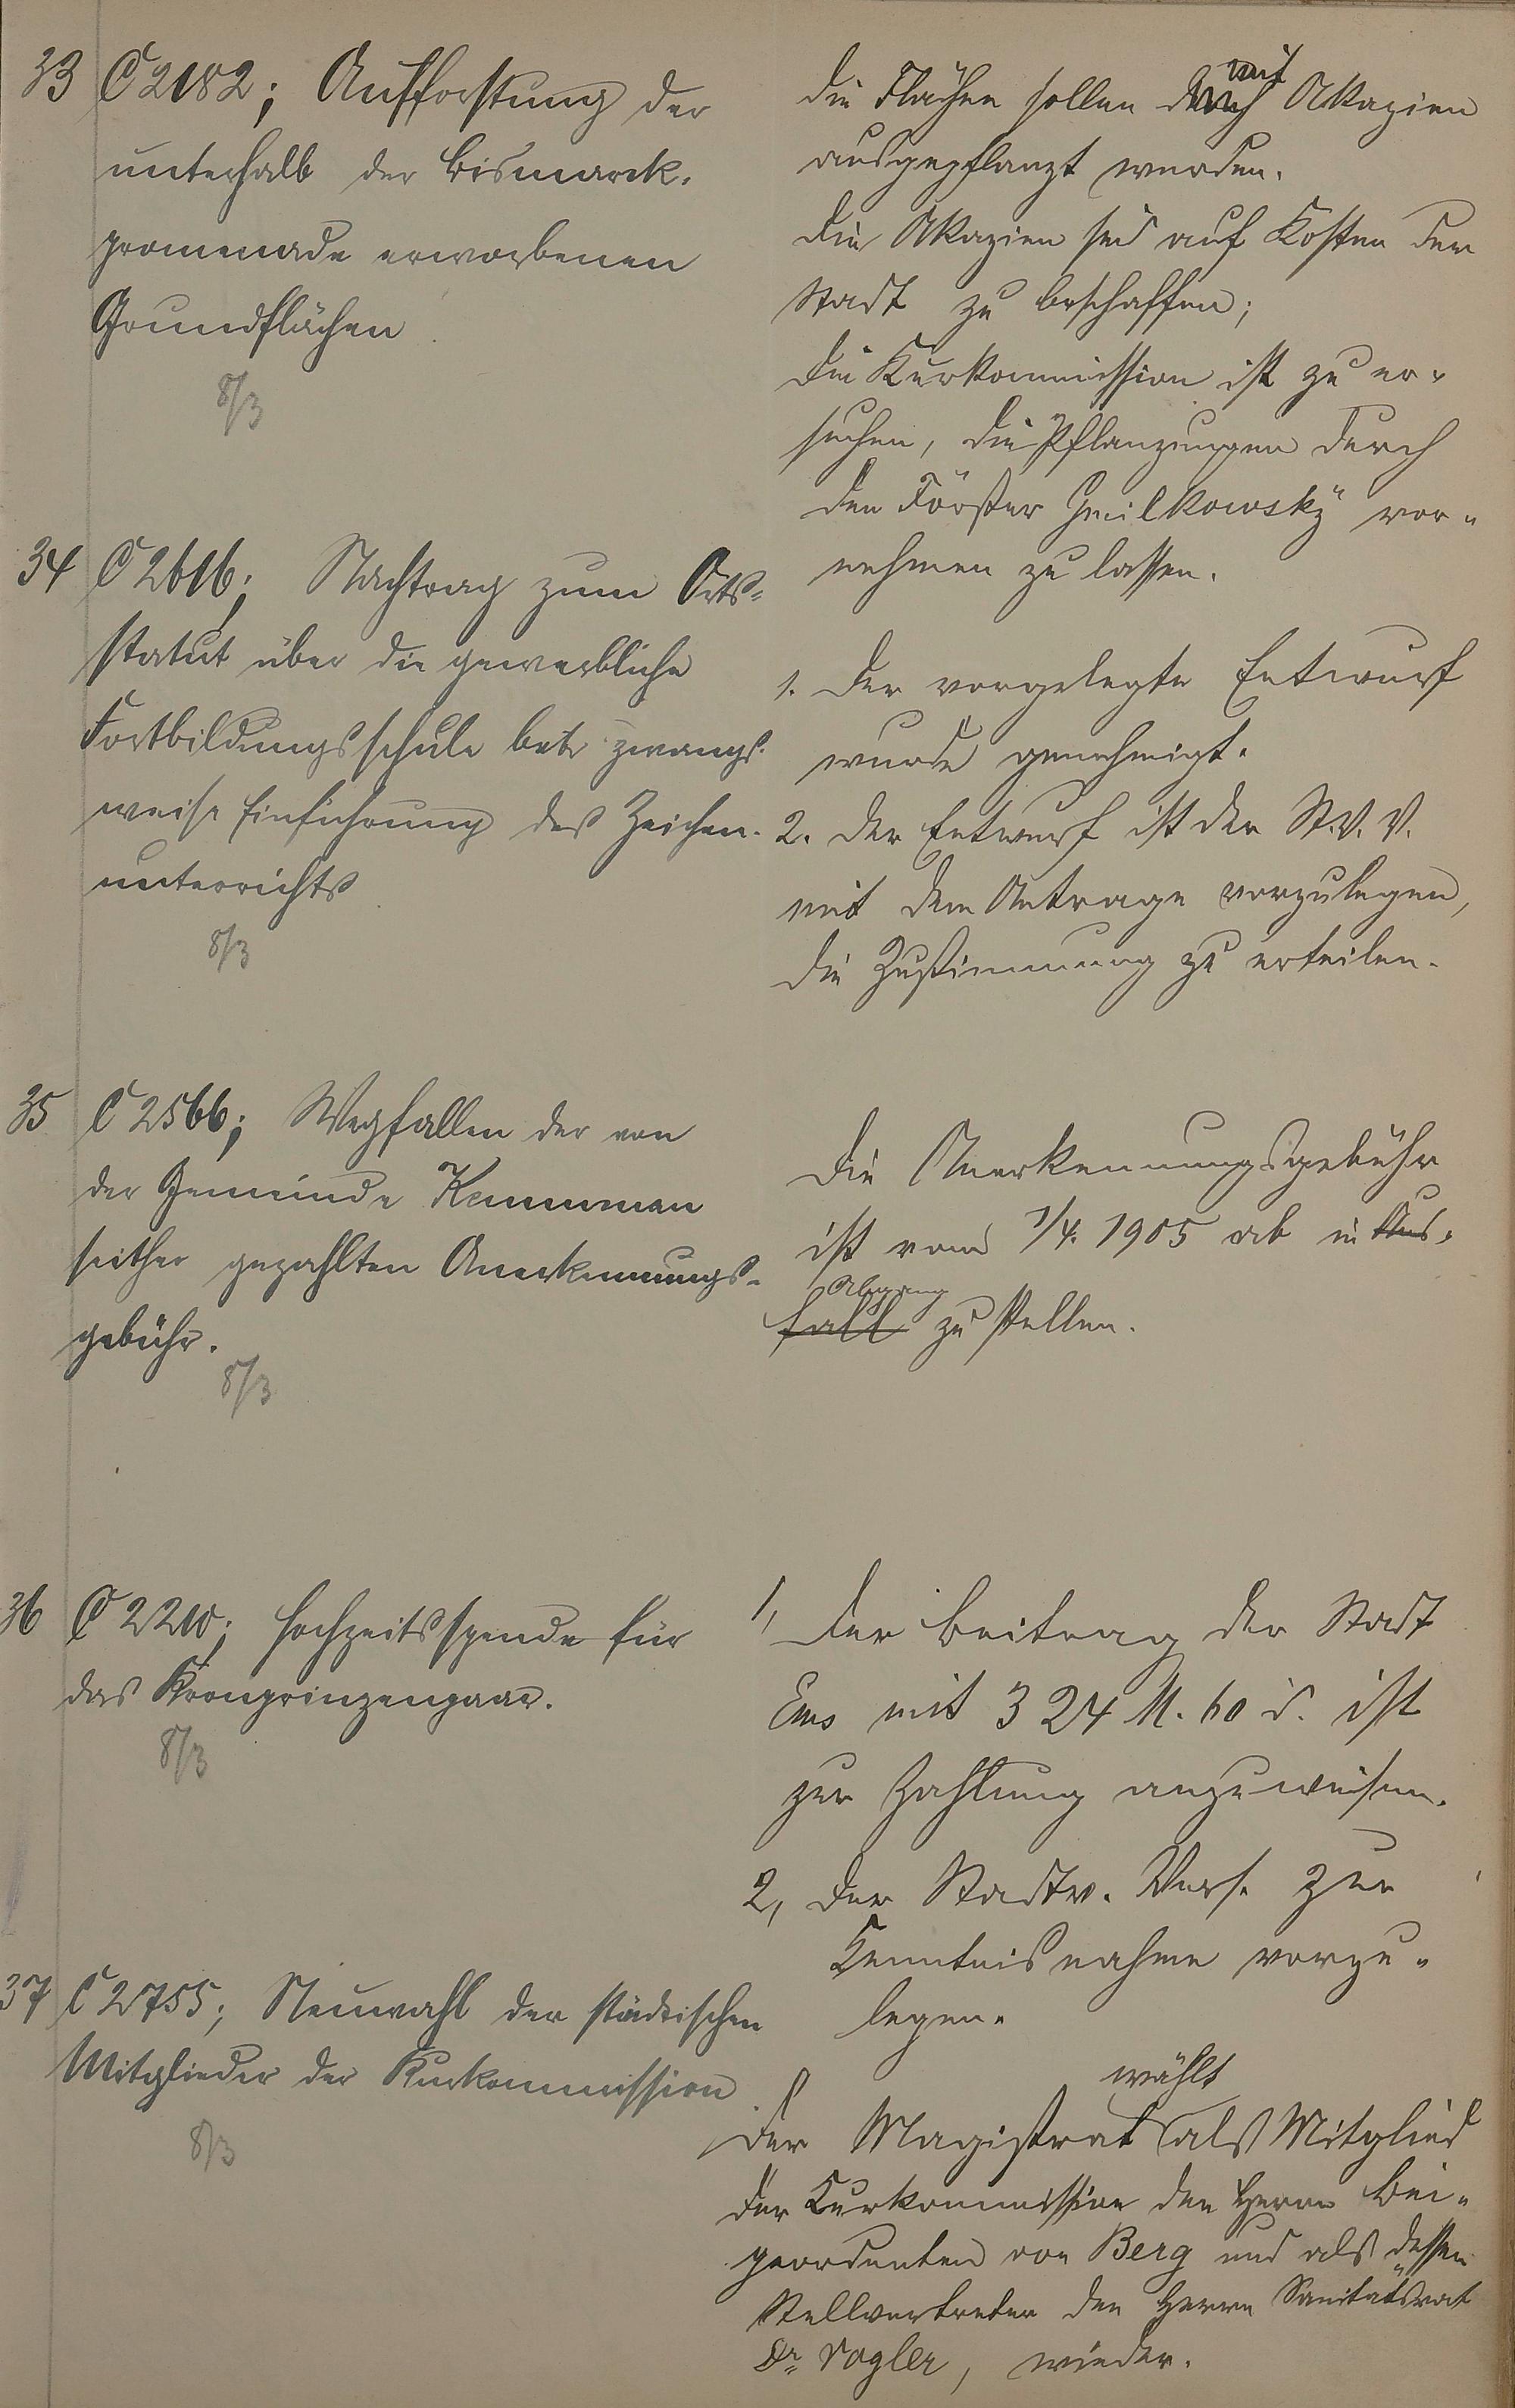 33 C 2182; Aufforstung der
unterhalb der Bismarck-
promenade erworbenen
Grundflächen
8/3
Die Flächen sollen durch mit Akazien
ausgepflanzt werden.
Die Akazien sind auf Kosten der
Stadt zu beschaffen;
Die Kurkommission ist zu er-
suchen, die Pflanzungen durch
den Förster Gmilkowsky vor-
nehmen zu lassen.
34 C 2616; Nachtrag zum Orts-
statut über die gewerbliche
Fortbildungsschule betr zwangs-
weise Einführung des Zeichen-
unterrichts
8/3
1. Der vorgelegte Entwurf
wurde genehmigt.
2. Der Entwurf ist der St.V.V.
mit dem Antrage vorzulegen,
die Zustimmung zu erteilen.
35 C 2566; Wegfallen der von
der Gemeinde Kemmenau
seither gezahlten Anerkennungs-
gebühr.
8/3
Die Anerkennungsgebühr
ist vom 1/4. 1905 ab in Aus-
Abgang
fall zu stellen.
36 C 2210; Hochzeitsspende für
das Kronprinzenpaar.
8/3
1, Der Beitrag der Stadt
Ems mit 324 M. 60 d. ist
zur Zahlung anzuweisen.
2, Der Stadtv. Vers. zur
Kenntnisnahme vorzu-
legen.
37 C 2755; Neuwahl der städtischen
Mitglieder der Kurkommission
8/3
wählt
Der Magistrat als Mitglied
der Kurkommission den Herrn Bei-
geordneten von Berg und als dessen
Stellvertreter den Herrn Sanitätsrat
Dr. Vogler, wieder.